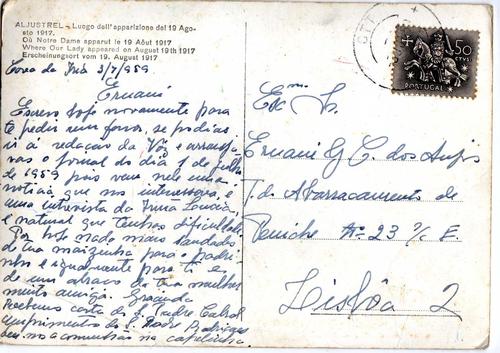 ALJUSTREL – Luogo dell'apparizione del 19 Ago-
sto 1917.
Où Notre Dame apparut le 19 Août 1917
Where Our Lady appeared on August 19th 1917
Erscheinungsort vom 19. August 1917
Cova da Iria 3/7/959
Ernani
Escrevo hoje novamente para
te pedir um favor, se podias
ir à redação da Voz e arranja-
vas o jornal do dia 1 de Julho
de 1959 pois vem nele uma
notícia que nos interessava, é
uma entrevista da Irmã Lúcia,
é natural que tenhas dificuldade.
Por hoje nada mais saudades
da tua mãizinha para o padri-
nho e igualmente para ti e
de um abraço da tua
muito amiga.
Recebemos carta do S. Padre Cabral
cumprimentos do S. Padre Rodrigues
na capelinha
CTT
1$50
CTVS.
PORTUGAL
Exmo Sr.
Ernani G. C. dos Anjos
T. do Abarracamento de
Peniche Nº 23 E.
Lisbôa 2